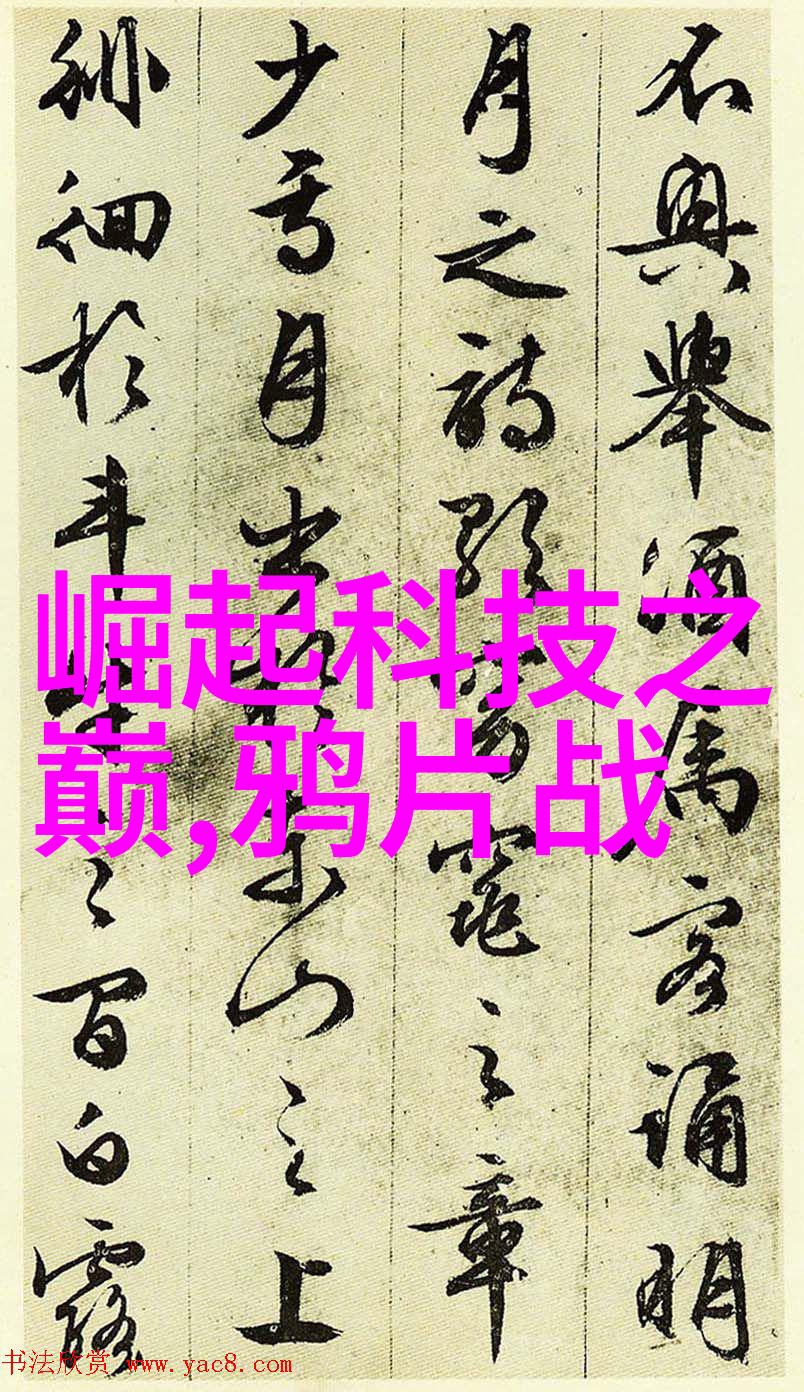 不興舉酒屬客誦明
月之詩歌窈窕之章
少焉月出於東山之上
徘徊於斗牛之間白露
崛起科技之
巅,鸦片战
书法欣赏 www.yac8.com